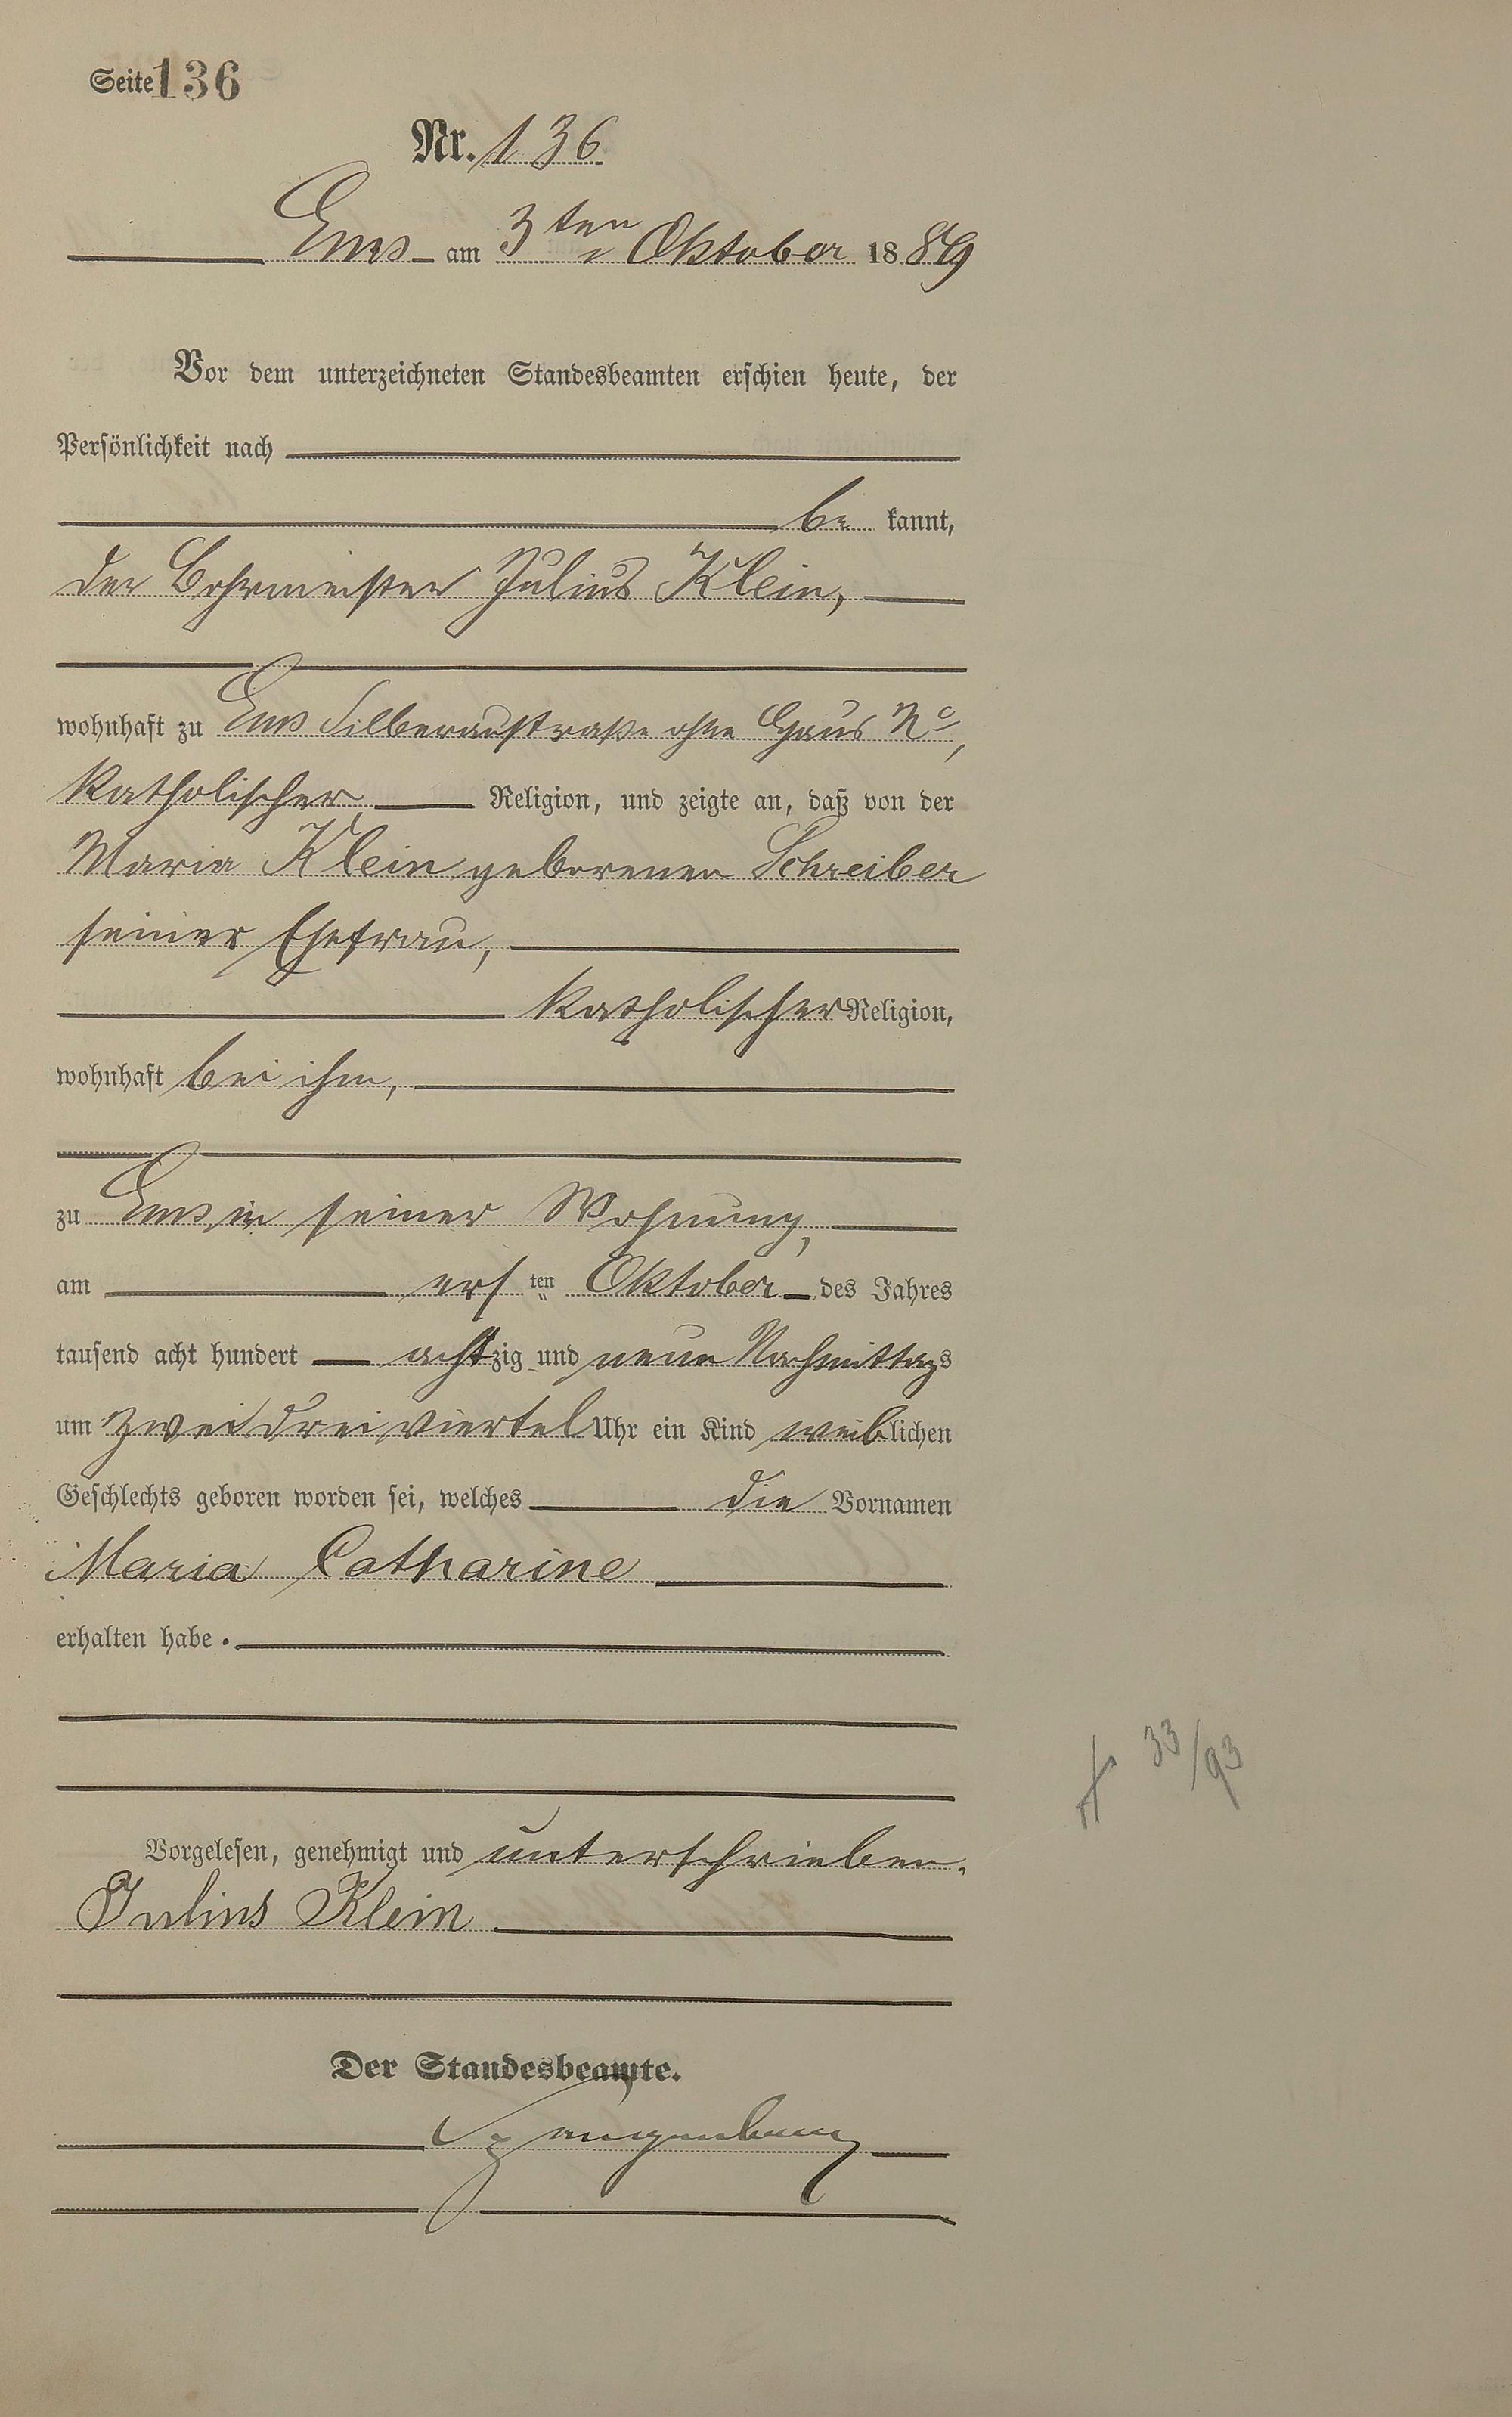 Seite 136
Nr. 136
Ems am 3ten Oktober 1889
Vor dem unterzeichneten Standesbeamten erschien heute, der
Persönlichkeit nach
be kannt,
der Bohrmeister Julius Klein,
wohnhaft zu Ems Silberaustraße ohne Haus No,
katholischer Religion, und zeigte an, daß von der
Maria Klein geborenen Schreiber
seiner Ehefrau,
katholischer Religion,
wohnhaft bei ihm,
zu Ems in seiner Wohnung,
am ersten Oktober des Jahres
tausend acht hundert achtzig und neun Nachmittags
um zwei dreiviertel Uhr ein Kind weiblichen
Geschlechts geboren worden sei, welches die Vornamen
Maria Catharine
erhalten habe.
33/93
Vorgelesen, genehmigt und unterschrieben.
Julius Klein
Der Standesbeamte.